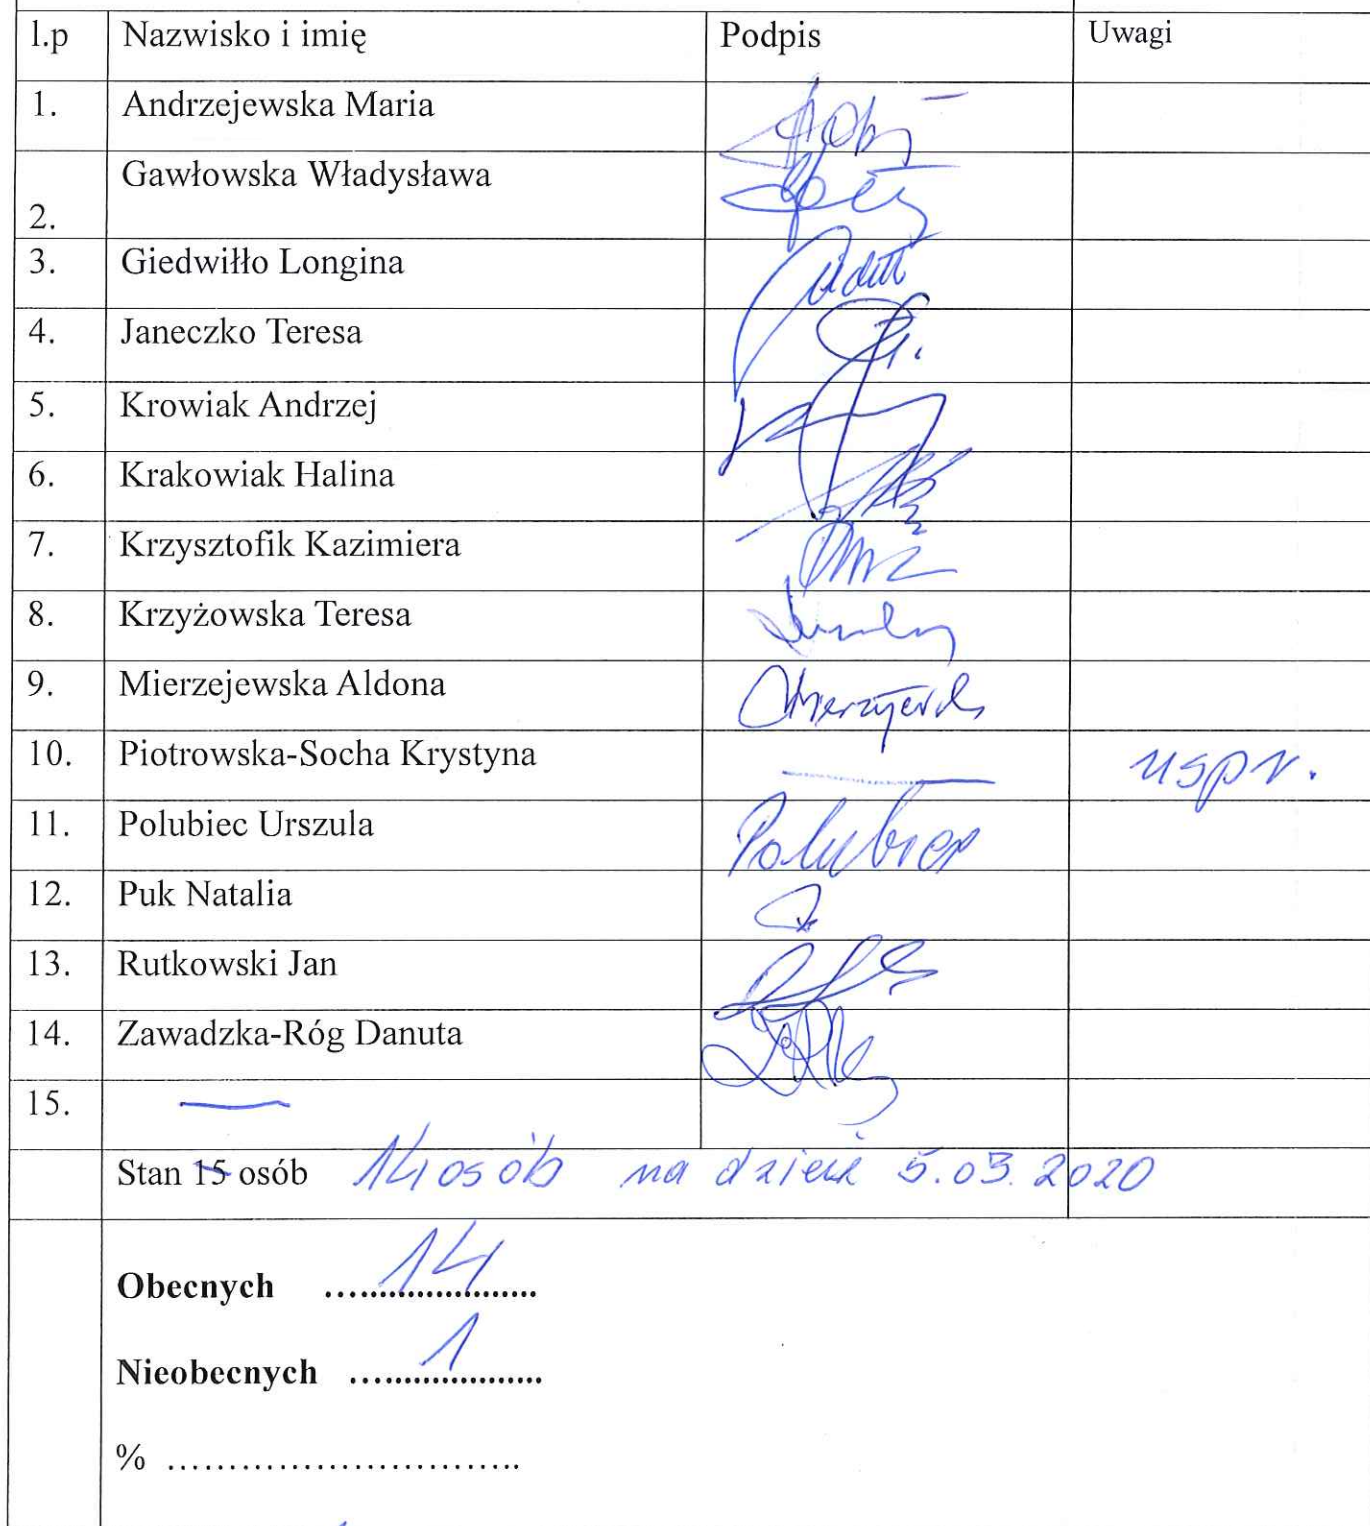 l.p Nazwisko i imię Podpis Uwagi
1. Andrzejewska Maria
Gawłowska Władysława
2.
3. Giedwiłło Longina
4. Janeczko Teresa
5. Krowiak Andrzej
6. Krakowiak Halina
7. Krzysztofik Kazimiera
8. Krzyżowska Teresa
9. Mierzejewska Aldona
10. Piotrowska-Socha Krystyna uspr.
11. Polubiec Urszula Polubiec
12. Puk Natalia
13. Rutkowski Jan
14. Zawadzka-Róg Danuta
15. —
Stan 15 osób 14 osób na dzień 5.03.2020
Obecnych ….................... 14
Nieobecnych ….................. 1
% ................................